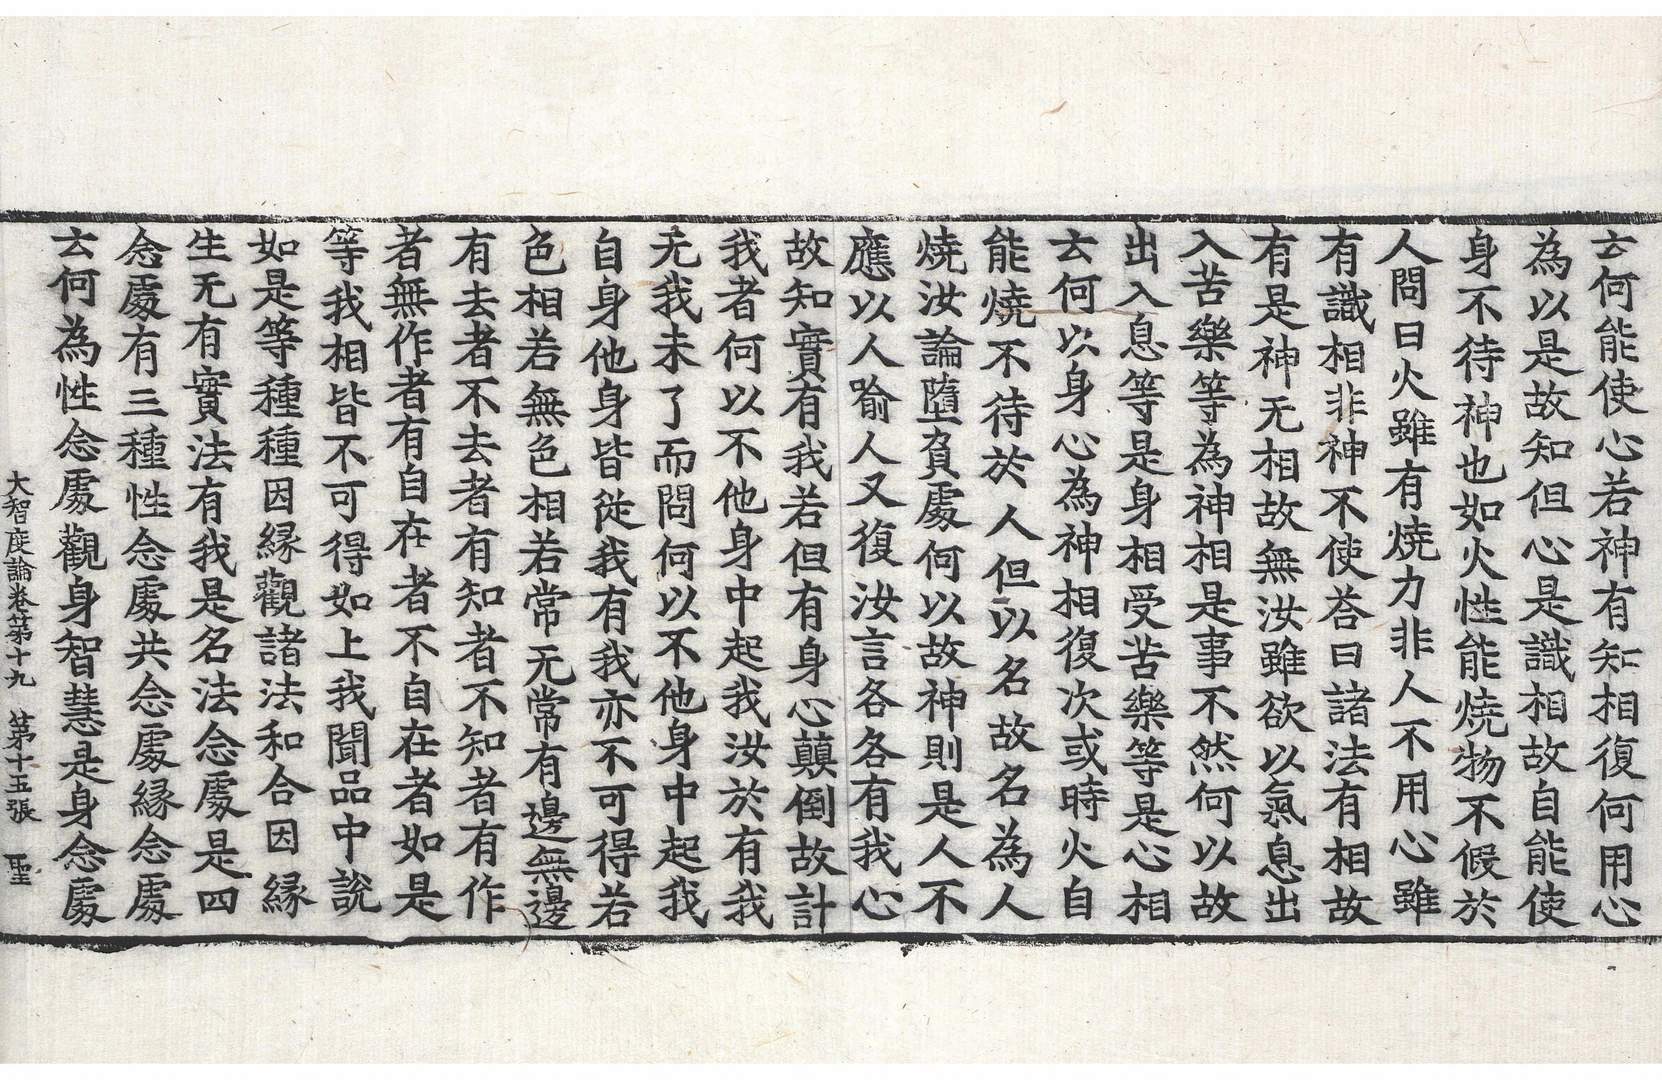 云何能使心若神有知相復何用心
為以是故知但心是識相故自能使
身不待神也如火性能燒物不假於
人問曰火雖有燒力非人不用心雖
有識相非神不使荅曰諸法有相故
有是神无相故無汝雖欲以氣息出
入苦樂等為神相是事不然何以故
出入息等是身相受苦樂等是心相
云何以身心為神相復次或時火自
能燒不待於人但以名故名為人
燒汝論墮負處何以故神則是人不
應以人喻人又復汝言各各有我心
故知實有我若但有身心顛倒故計
我者何以不他身中起我汝於有我
无我未了而問何以不他身中起我
自身他身皆從我有我亦不可得若
色相若無色相若常无常有邊無邊
有去者不去者有知者不知者有作
者無作者有自在者不自在者如是
等我相皆不可得如上我聞品中說
如是等種種因緣觀諸法和合因緣
生无有實法有我是名法念處是四
念處有三種性念處共念處緣念處
云何為性念處觀身智慧是身念處
大智度論卷第十九 第十五張 聖